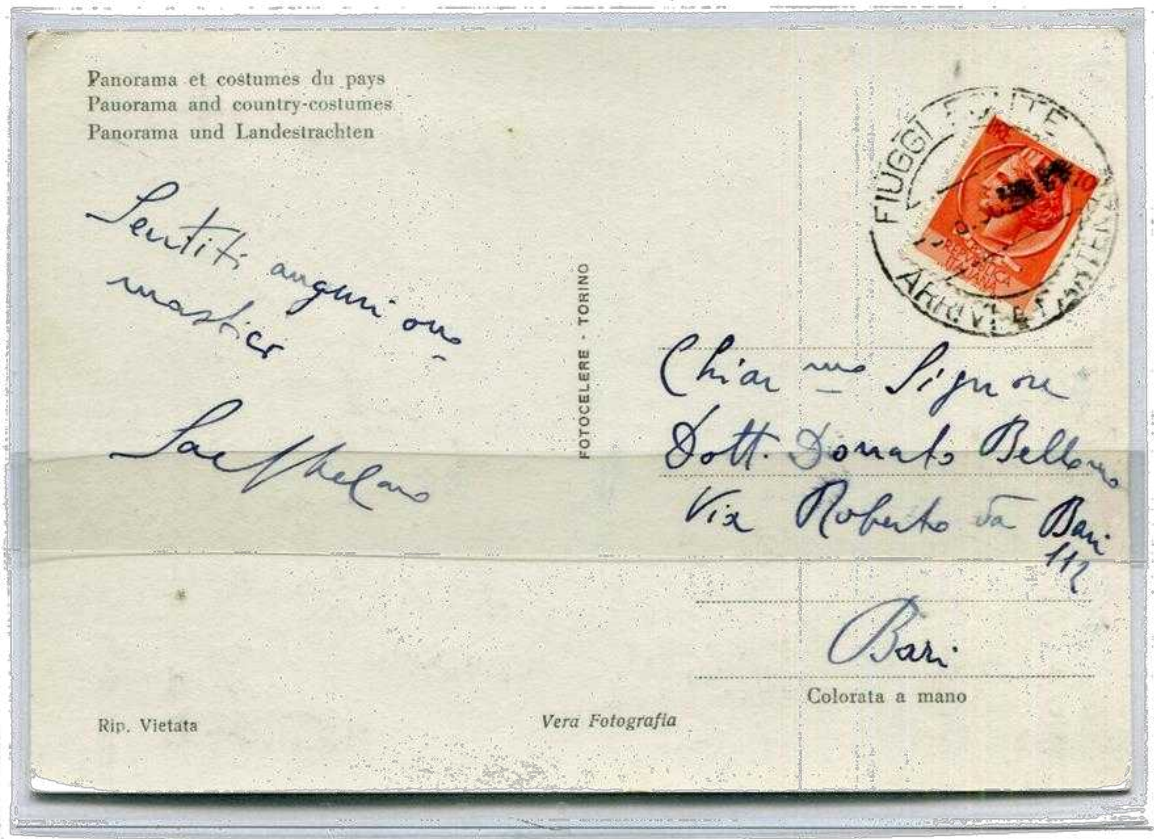 Panorama et costumes du pays
Pauorama and country-costumes
Panorama und Landestrachten
Sentiti auguri ono-
mastico
FOTOCELERE - TORINO
FIUGGI FONTE
10
REPUBBLICA
ITALIANA
Chiar mo Signore
Dott. Donato Bellomo
Via Roberto da Bari
112
Bari
Colorata a mano
Rip. Vietata
Vera Fotografia